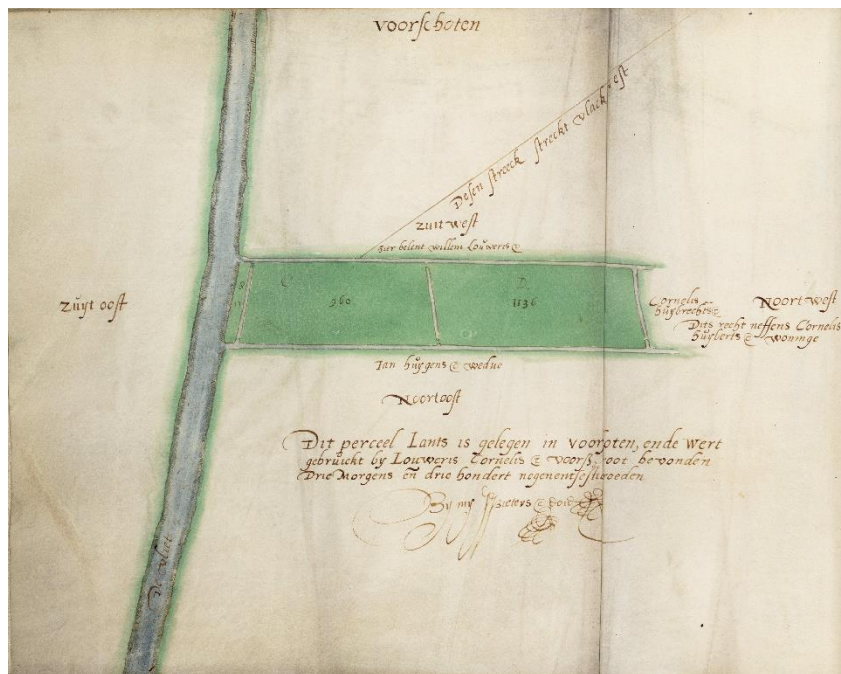 voorschoten
Desen streeck streckt vlack est
zuit west
hier belent willem Louweris
C
D
960
1136
zuyt oost
Cornelis
huybrechts
Noort west
Dits recht neffens Cornelis
huyberts woninge
Jan huygens wedue
Noortoost
Dit perceel Lants is gelegen in voorschoten, ende wert
gebruickt by Louweris Cornelis voors. groot bevonden
Drie Morgens en drie hondert negenentsestich roeden
By my Pieters
De vliet